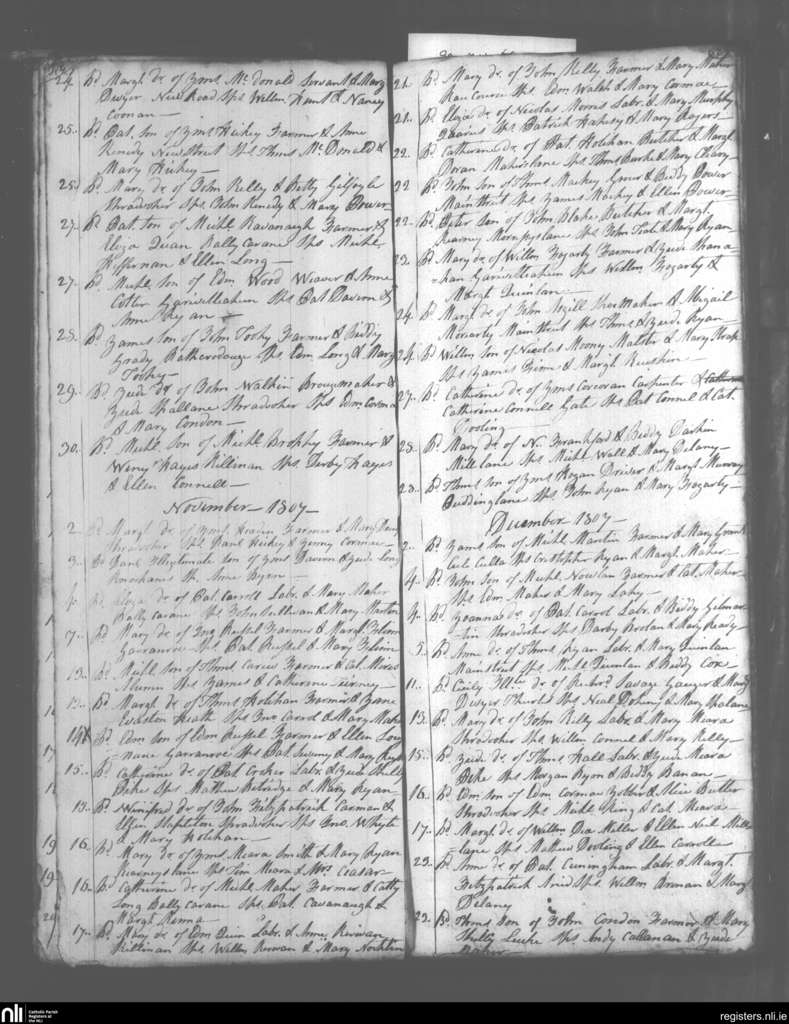 24. Bd. Margt. dr. of Jams. Mc.donald Servant & Mary
Dwyer New Road Sps. Willm. Hunt & Nancy
Coonan —
25. Bd. Pat. Son of Jams. Hickey Farmer & Anne
Kenedy New Street Sps. Thms. Mc.Donald &
Mary Hickey —
25. Bd. Mary dr. of John Kelly & Betty Gilfoyle
Thradvoher Sps. John Kenedy & Mary Power
27. Bd. Pat. Son of Michl. Kavanaugh Farmer &
Eliza Quan Bally Carane Sps. Michl.
Heffernan & Ellen Long —
27. Bd. Michl. Son of Edm. Wood Weaver & Anne
Cotter Garwillahien Sps. Pat. Davern &
Anne Ryan —
28. Bd. James Son of John Toohy Farmer & Biddy
Grady Sps. Edm. Long & Mary
Toohy —
29. Bd. Judy dr. of John Walkin Broguemaker &
Judy Shallane Thradvoher Sps. Edm. Cormac
& Mary Condon —
30. Bd. Michl. Son of Michl. Brophy Farmer &
Winy Hayes Killinan Sps. Derby Hayes
& Ellen Connell —
November — 1807 —
2. Bd. Margt. dr. of Farmer & Mary
Thradvoher Sps. Danl. Hickey & Jenny Cormac —
3. Bd. Danl. Illegitimate son of Jams. Davern & Judy Long
Anne Byrn —
4. Bd. Eliza dr. of Pat. Carroll Labr. & Mary Maher
Bally Carane Sps. John Sullivan & Mary
7. Bd. Mary dr. of Jno. Russel Farmer & Margt.
Garranroe Sps. Pat. Russel & Mary
13. Bd. Michl. Son of Thms. Carew Farmer & Cat.
Sps. James & Catherine Tierney —
13. Bd. Margt. dr. of Thms. Holohan Farmer & Jane
Everston Heath Sps. Jno. Carrol & Mary Maher
14. Bd. Edm. Son of Edm. Russel Farmer & Ellen
Garranroe Sps. Pat. Sweeny & Mary
15. Bd. Catherine dr. of Pat. Croker Labr. & Judy
Dike Sps. Mathew Betridge & Mary Ryan —
15. Bd. Winifred dr. of John Fitzpatrick Carman &
Elsie Stapleton Thradvoher Sps. Jno. Whyte
& Mary Holohan —
16. Bd. Mary dr. of Jams. Meara Smith & Mary Ryan
Kearneys lane Sps. Tim Meara & Mrs. Ceasar —
16. Bd. Catherine dr. of Michl. Maher Farmer & Catty
Long Bally Carane Sps. Pat. Cavanaugh &
Margt. Kenna —
17. Bd. Mary dr. of Edm. Quin Labr. & Anne Kirwan
Killinan Sps. Willm. Kirwan & Mary
21. Bd. Mary dr. of John Kelly Farmer & Mary Maher
Race Course Sps. Edm. Walsh & Mary Cormac —
21. Bd. Eliza dr. of Nicolas Morres Labr. & Mary Murphy
Sps. Patrick Fahesy & Mary Rogers —
22. Bd. Catherine dr. of Pat. Holohan Butcher & Margt.
Doran Mahers lane Sps. Thms. Burke & Mary
22 Bd. John Son of Thms. Mackey Grocer & Biddy Power
Main Street Sps. James Mackey & Ellen Bower —
22. Bd. Peter Son of John Blake Butcher & Margt.
Kearney Sps. John Toole & Mary Ryan
23. Bd. Mary dr. of Willm. Fogarty Farmer & Judy Shana
=han Garwillahien Sps. Willm. Fogarty &
Margt. Quinlan —
24. Bd. Margt. dr. of John Mgill Shoe Maker & Abigail
Moriarty Main Street Sps. Thms. & Judy Ryan —
24. Bd. Willm. Son of Nicolas Mooney Malster & Mary
Sps. James Kirwan & Margt. —
27. Bd. Catherine dr. of Jams. Corcoran Carpenter &
Catherine Connell Gate Sps. Pat. Connel & Cat.
Dooling —
28. Bd. Mary dr. of N. Frankford & Biddy Larkin
Mill lane Sps. Michl. Wall & Mary Delany —
28. Bd. Thms. Son of Jams. Hogan Driver & Margt. Murray
Puddinglane Sps. John Ryan & Mary Fogarty —
December — 1807 —
2. Bd. James Son of Michl. Martin Farmer & Mary
Sps. Cristopher Ryan & Margt. Maher —
4. Bd. John Son of Michl. Nowlan Farmer & Cat. Maher
Sps. Edm. Maher & Mary Lahy —
4. Bd. Joanna dr. of Pat. Carrol Labr. & Biddy Gilmar
=tin Thradvoher Sps. Darby Boolan & Mary Ready —
5. Bd. Anne dr. of Thms. Ryan Labr. & Mary Quinlan
Main street Sps. Michl. Quinlan & Biddy Cox —
11. Bd. Cicily Illte. dr. of Richrd. Savage Gauger & Mary
Dwyer Thurles Sps. Neal Doheny & Mary Malone
13. Bd. Mary dr. of John Kelly Labr. & Mary Meara
Thradvoher Sps. Willm. Connel & Mary Kelly —
15. Bd. Judy dr. of Thms. Hall Labr. & Judy Meara
Dike Sps. Morgan Ryan & Biddy Banan —
16. Bd. Edm. Son of Edm. Cormac & Alice Butler
Thradvoher Sps. Michl. King & Cat. Meara —
17. Bd. Margt. dr. of Willm. Dea Miller & Ellen Neil Mill
=lane Sps. Mathew Dooling & Ellen Carroll —
23. Bd. Anne dr. of Pat. Cuningham Labr. & Margt.
Fitzpatrick Sps. Willm. Brenan & Margt.
Delany
23. Bd. Thms. Son of John Condon Farmer & Mary
Shelly Sps. Andy Callanan & Judy
Maher
nli
Catholic Parish
Registers at
the NLI
registers.nli.ie